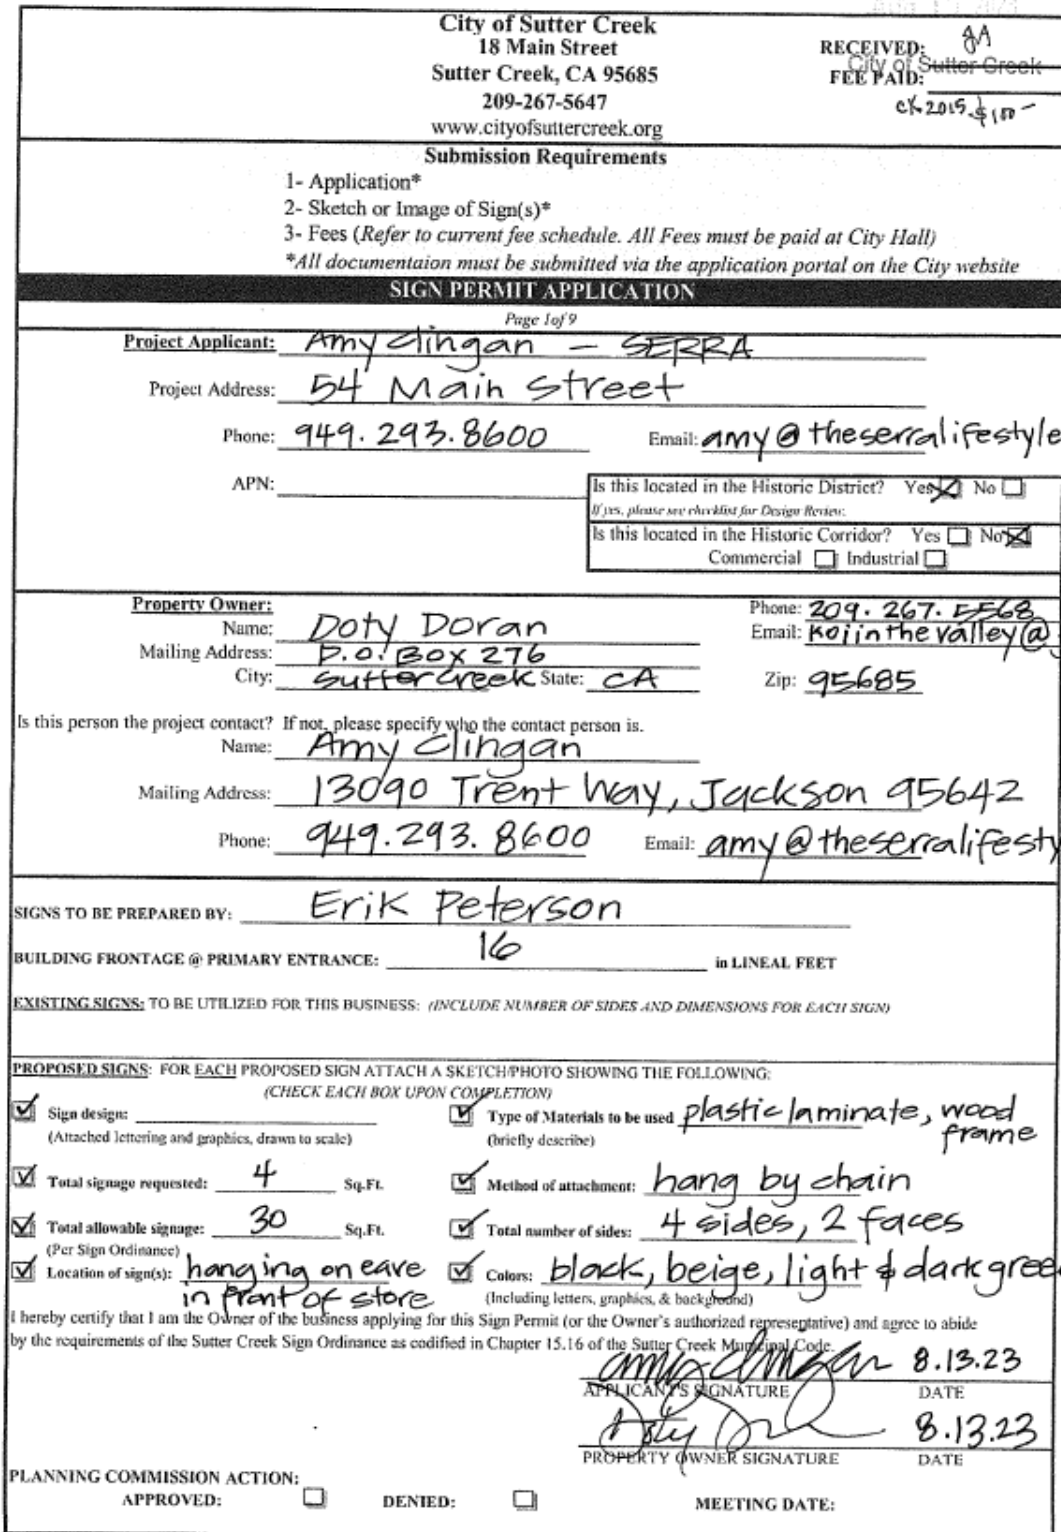 City of Sutter Creek
18 Main Street
Sutter Creek, CA 95685
209-267-5647
www.cityofsuttercreek.org
RECEIVED: JA
City of Sutter Creek
FEE PAID:
CK 2015 $100-
Submission Requirements
1- Application*
2- Sketch or Image of Sign(s)*
3- Fees (Refer to current fee schedule. All Fees must be paid at City Hall)
*All documentaion must be submitted via the application portal on the City website
SIGN PERMIT APPLICATION
Page 1of 9
Project Applicant: Amy Clingan - SERRA
Project Address: 54 Main Street
Phone: 949.293.8600 Email: amy@theserralifestyle
APN:
Is this located in the Historic District? Yes No
If yes, please see checklist for Design Review.
Is this located in the Historic Corridor? Yes No
Commercial Industrial
Property Owner: Phone: 209.267.5568
Name: Doty Doran Email: Kojinthevalley@
Mailing Address: P.O. Box 276
City: Sutter Creek State: CA Zip: 95685
Is this person the project contact? If not, please specify who the contact person is.
Name: Amy Clingan
Mailing Address: 13090 Trent Way, Jackson 95642
Phone: 949.293.8600 Email: amy@theserralifesty
SIGNS TO BE PREPARED BY: Erik Peterson
BUILDING FRONTAGE @ PRIMARY ENTRANCE: 16 in LINEAL FEET
EXISTING SIGNS: TO BE UTILIZED FOR THIS BUSINESS: (INCLUDE NUMBER OF SIDES AND DIMENSIONS FOR EACH SIGN)
PROPOSED SIGNS: FOR EACH PROPOSED SIGN ATTACH A SKETCH/PHOTO SHOWING THE FOLLOWING:
(CHECK EACH BOX UPON COMPLETION)
Sign design: Type of Materials to be used plastic laminate, wood frame
(Attached lettering and graphics, drawn to scale) (briefly describe)
Total signage requested: 4 Sq.Ft. Method of attachment: hang by chain
Total allowable signage: 30 Sq.Ft. Total number of sides: 4 sides, 2 faces
(Per Sign Ordinance)
Location of sign(s): hanging on eave in front of store Colors: black, beige, light & dark gree
(Including letters, graphics, & background)
I hereby certify that I am the Owner of the business applying for this Sign Permit (or the Owner's authorized representative) and agree to abide
by the requirements of the Sutter Creek Sign Ordinance as codified in Chapter 15.16 of the Sutter Creek Municipal Code.
Amy Clingan 8.13.23
APPLICANT'S SIGNATURE DATE
Doty D 8.13.23
PROPERTY OWNER SIGNATURE DATE
PLANNING COMMISSION ACTION:
APPROVED: DENIED: MEETING DATE: